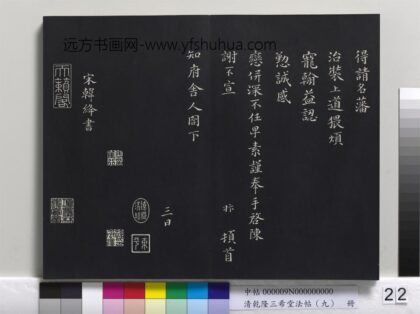 远方书画网-www.yfshuhua.com
得請名藩
治裝上道猥煩
寵翰益認
懃誠感
戀併深不任早素謹奉手啓陳
謝不宣 絳 頓首
知府舍人閤下
三日
宋韓絳書
天籟閣
中帖 000009N000000000
清乾隆三希堂法帖(九) 冊
22